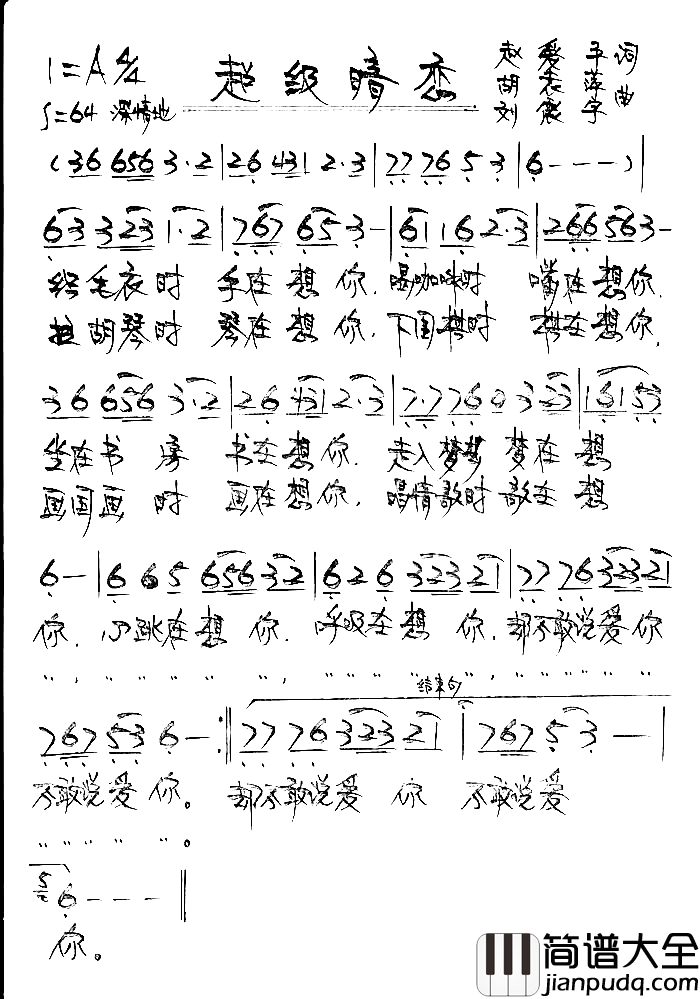 1=A 4/4 超级暗恋 赵爱平 词
胡 萍
♩=64 深情地 刘 宇 曲
(36 656 3·2|26 431 2·3|77 76 5 3|6---)|
63 323 1·2|767 65 3-|61 16 2·3|266 563-
织毛衣时 手在想你.喝咖啡时 嘴在想你.
拉胡琴时 琴在想你.下围棋时 棋在想你.
36 656 3·2|26 431 2·3|7·7760 323|161 53
坐在书房 书在想你.走入梦乡 梦在想
画国画时 画在想你.唱情歌时 歌在想
6-|665 65632|626 323 21|77 76 323 21
你.心跳在想你.呼吸在想你.却不敢说爱你
结束句
767 53 6-:‖77 76 323 21|767 5 3-|
不敢说爱你。却不敢说爱你 不敢说爱
6---‖
你。
简谱大全
jianpudq.com